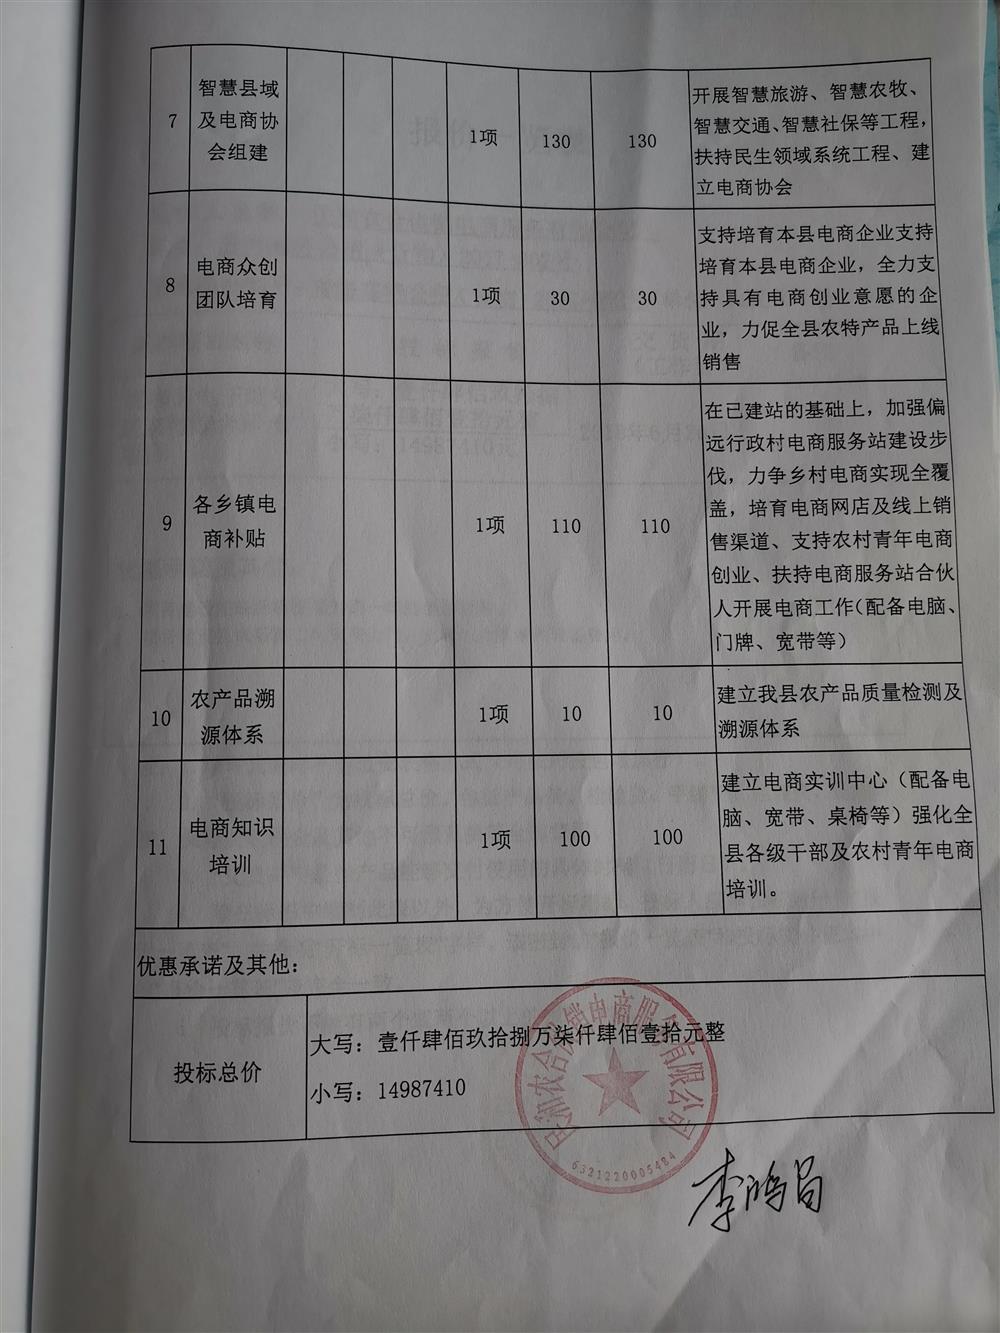 7
智慧县域
及电商协
会组建
1项
130
130
开展智慧旅游、智慧农牧、
智慧交通、智慧社保等工程，
扶持民生领域系统工程、建
立电商协会
8
电商众创
团队培育
1项
30
30
支持培育本县电商企业支持
培育本县电商企业，全力支
持具有电商创业意愿的企
业，力促全县农特产品上线
销售
9
各乡镇电
商补贴
1项
110
110
在已建站的基础上，加强偏
远行政村电商服务站建设步
伐，力争乡村电商实现全覆
盖，培育电商网店及线上销
售渠道、支持农村青年电商
创业、扶持电商服务站合伙
人开展电商工作（配备电脑、
门牌、宽带等）
10
农产品溯
源体系
1项
10
10
建立我县农产品质量检测及
溯源体系
11
电商知识
培训
1项
100
100
建立电商实训中心（配备电
脑、宽带、桌椅等）强化全
县各级干部及农村青年电商
培训。
优惠承诺及其他：
投标总价
大写：壹仟肆佰玖拾捌万柒仟肆佰壹拾元整
小写：14987410
电商服务有限公司
6321220005484